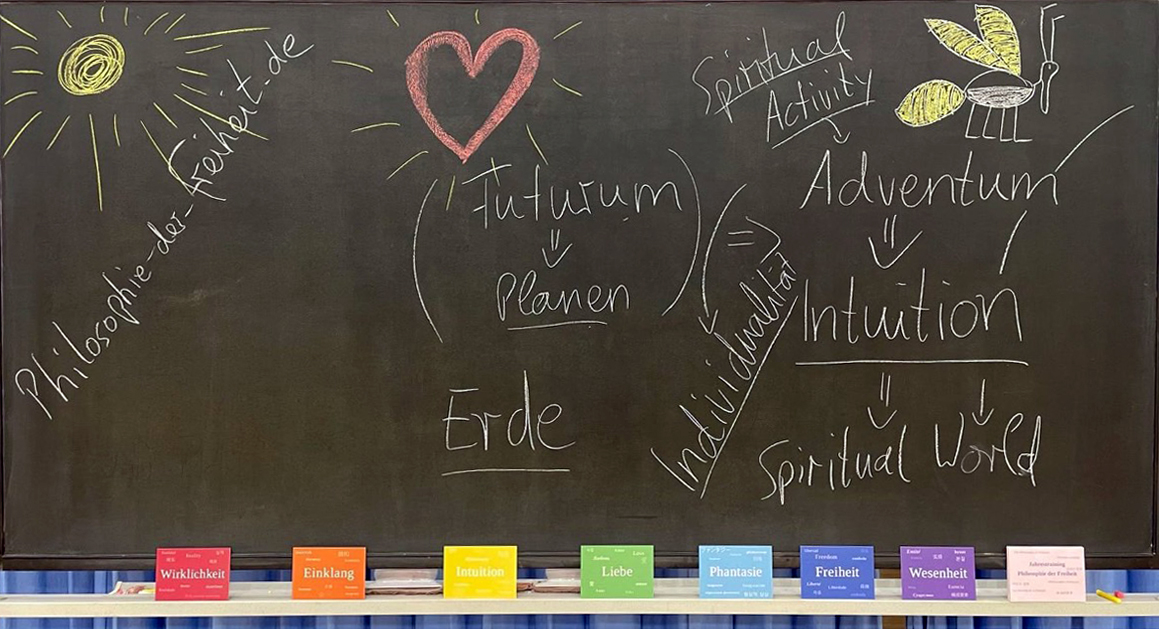 Philosophie-der-Freiheit.de
Spiritual
Activity
Futurum
Planen
Adventum
Intuition
Individualität
Erde
Spiritual World
Wirklichkeit
Einklang
Intuition
Liebe
Phantasie
Freiheit
Wesenheit
Jahrestraining
Philosophie der Freiheit